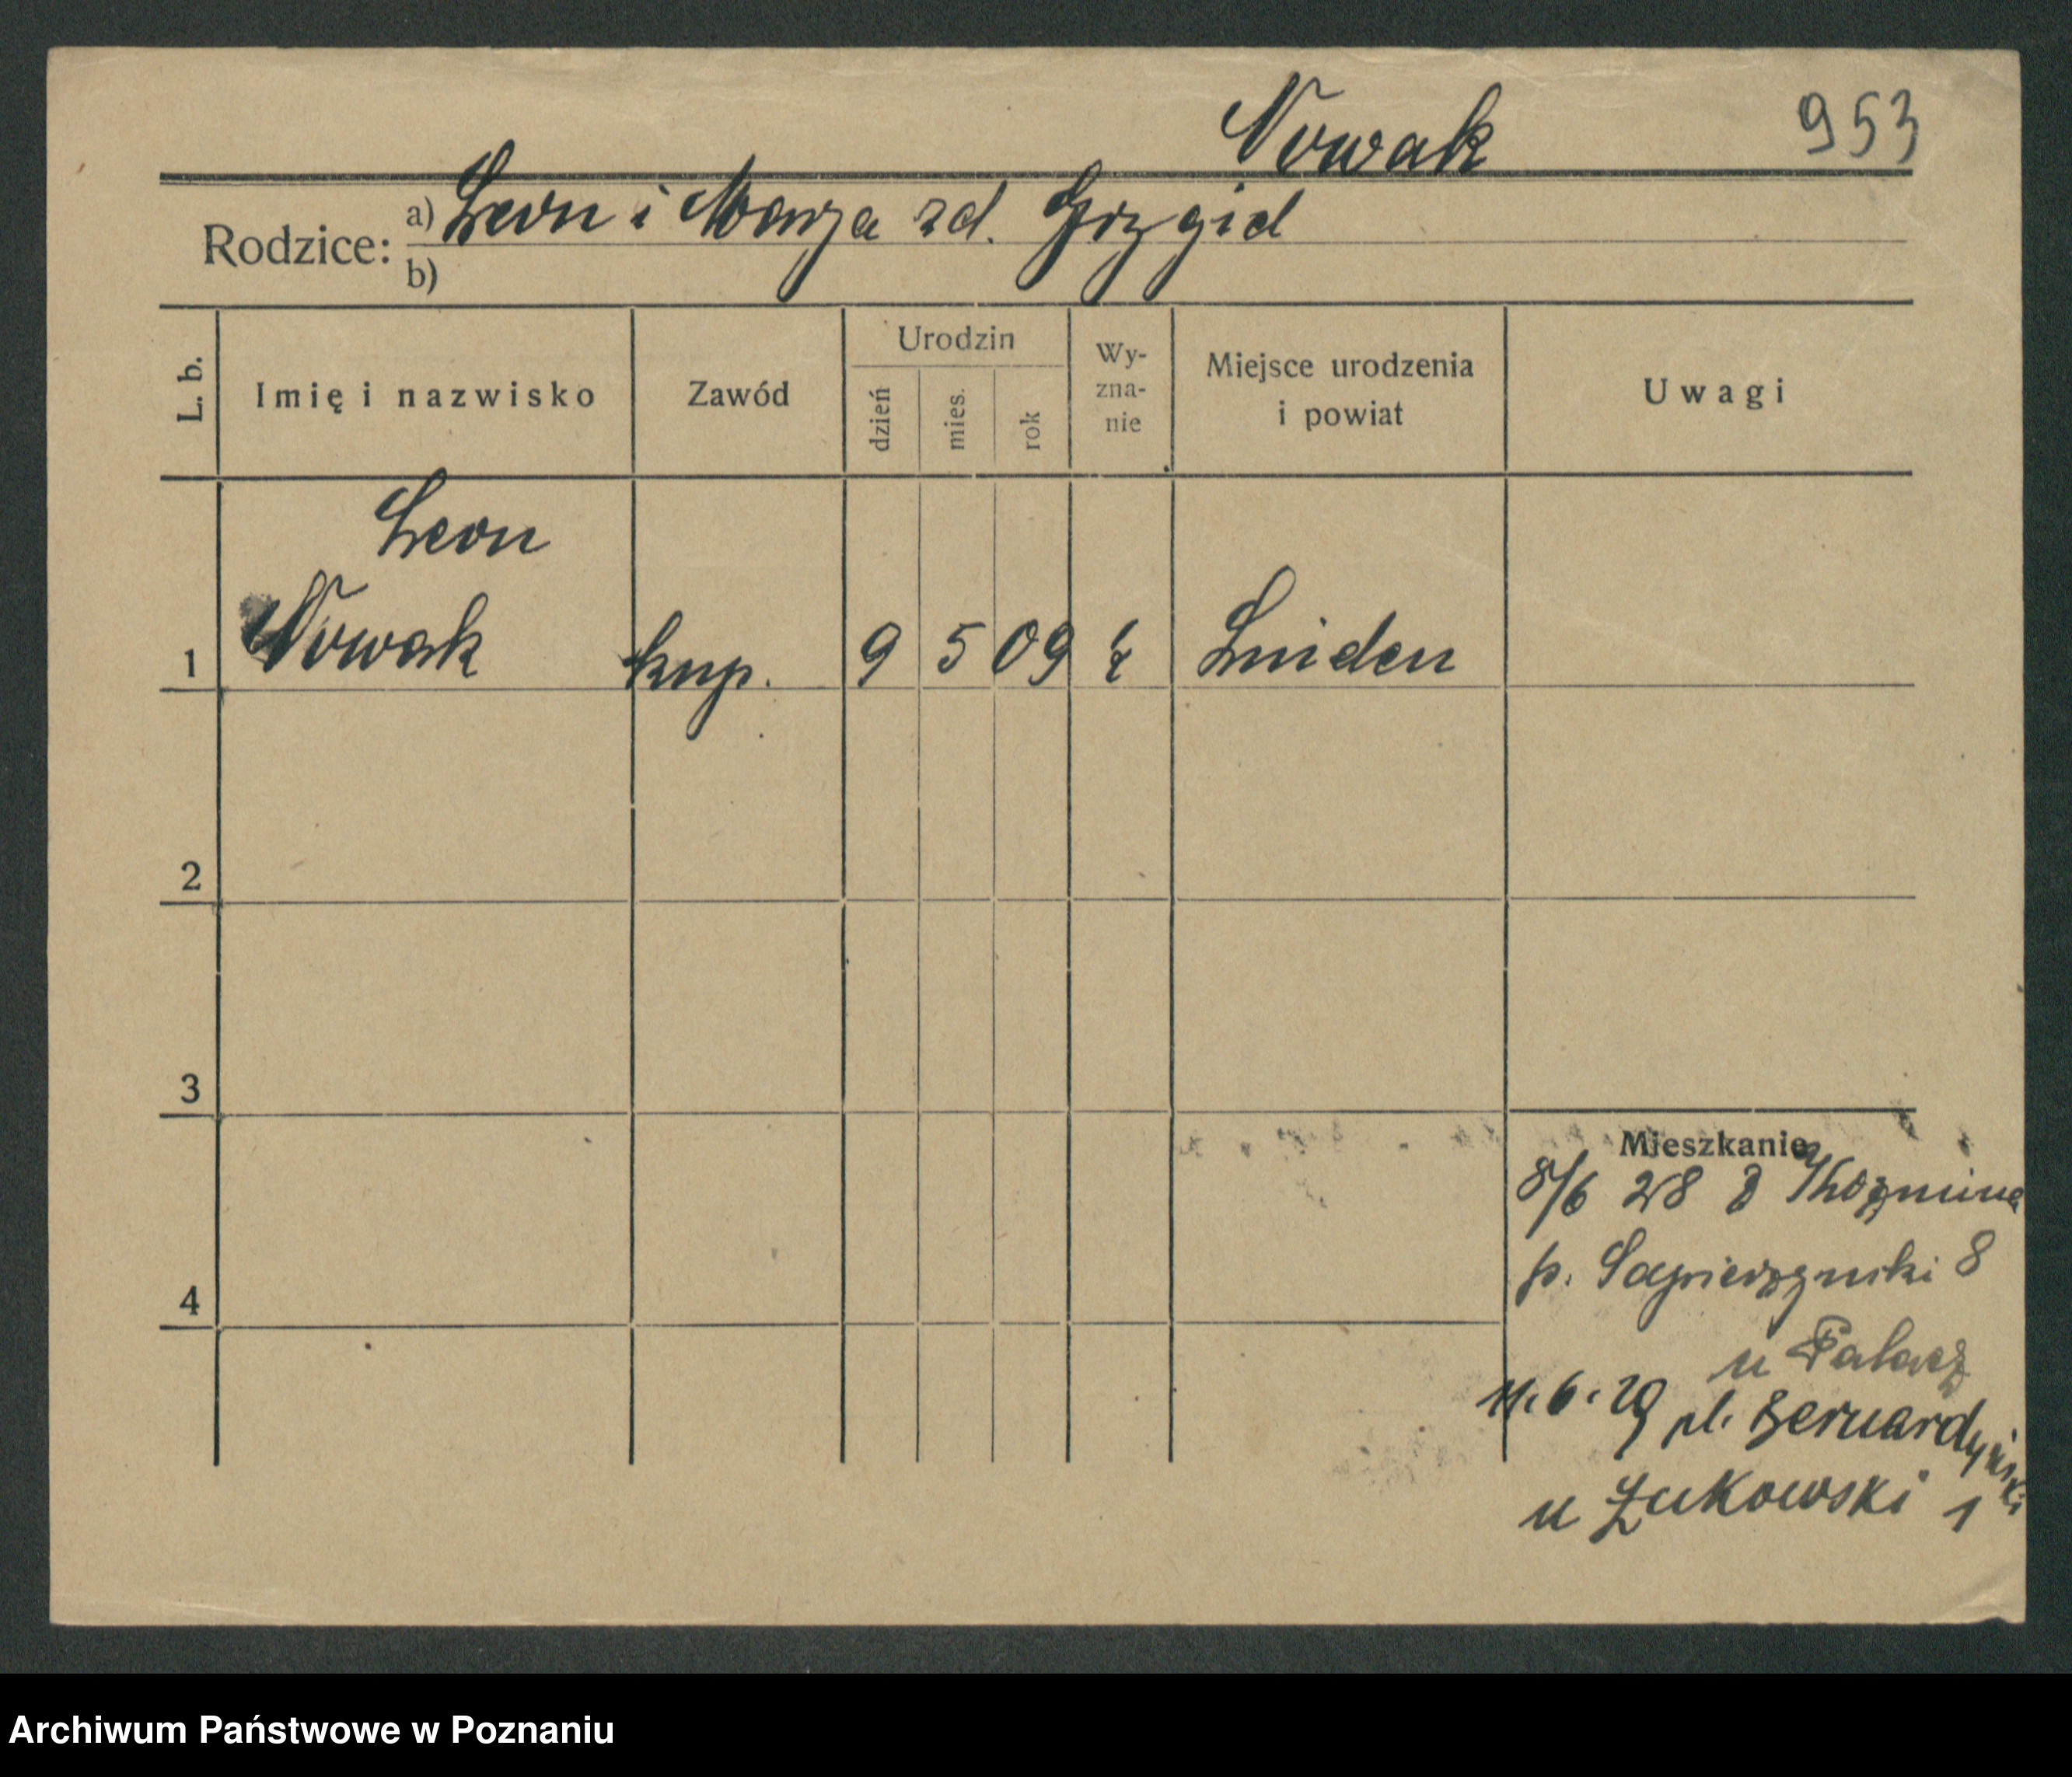 Nowak 953
Rodzice: a) Leon i Marja zd.
b)
L. b. Imię i nazwisko Zawód Urodzin dzień mies. rok Wy-zna-nie Miejsce urodzenia i powiat Uwagi
Leon
1 Nowak kup. 9 5 09 Linden
2
3
Mieszkanie
8/6 28 z Koźmina
p. Sapieżyński 8
4
u Palacz
11.6.29 pl. Bernardyński 1
u Żukowski
Archiwum Państwowe w Poznaniu